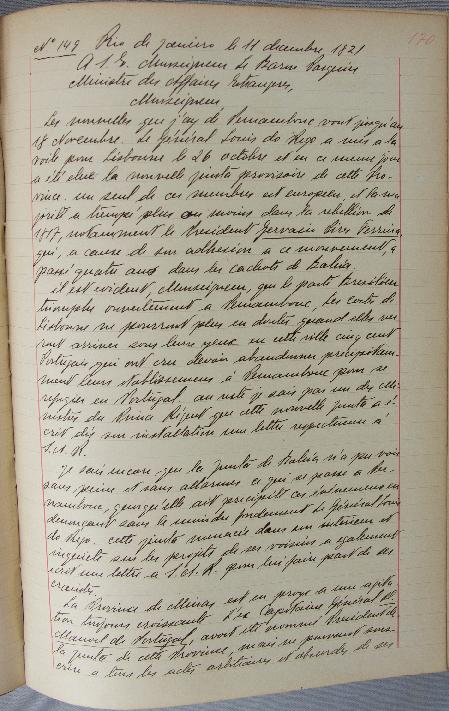 170
Nº 149 Rio de Janeiro le 11 decembre 1821
A S. E. Monseigneur le Baron Pasquier
Ministre des Affaires Etrangeres,
Monseigneur,
Les nouvelles que j'ay de Pernambouc vont jusqu'au
18 Novembre. Le Général Louis do Rego a mis a la
voile pour Lisbonne le 26 octobre et en ce meme jour
a été elue la nouvelle junta provisoire de cette Pro-
vince. un seul de ces membres est européen, et la ma
jorité a trempé plus ou moins dans la rebellion de
1817, notamment le President Gervasio Pires Ferreira
qui, a cause de son adhesion a ce mouvement, a
passé quatre ans dans les cachots de Bahia.
il est evident, Monseigneur, que le parti Bresilien
triomphe ouvertement a Pernambouc, Les Cortès de
Lisbonne ne pourront plus en douter quand elles ver
ront arriver sous leurs yeux en cette ville cinq cent
Portugais qui ont cru devoir abandonner precipitem-
ment leurs etablissemens à Pernambouc pour se
refugier en Portugal. au reste je sais par un des Mi-
nistres du Prince Régent que cette nouvelle junta a é-
crit dés son installation une lettre respectueuse à
S. A. R.
Je sais encore que la Junta de Bahia n'a pas vu
sans peine et sans allarmes ce qui se passe a Per-
nambouc, quoiqu'elle ait precipité ces évenemens en
denonçant sans le moindre fondement le Général Louis
do Rego. cette junta menacée dans son interieur et
inquiete sur les projets de ses voisins a egalement
écrit une lettre a S. A. R. pour lui faire part de ses
craintes.
La Province de Minas est en proye a une agita-
tion toujours croissante. l'ex Capitaine Général D.
Manuel de Portugal, avoit été nommé President de
la junta de cette Province, mais ne pouvant sous-
crire a tous les actes arbitraires et absurdes de ses